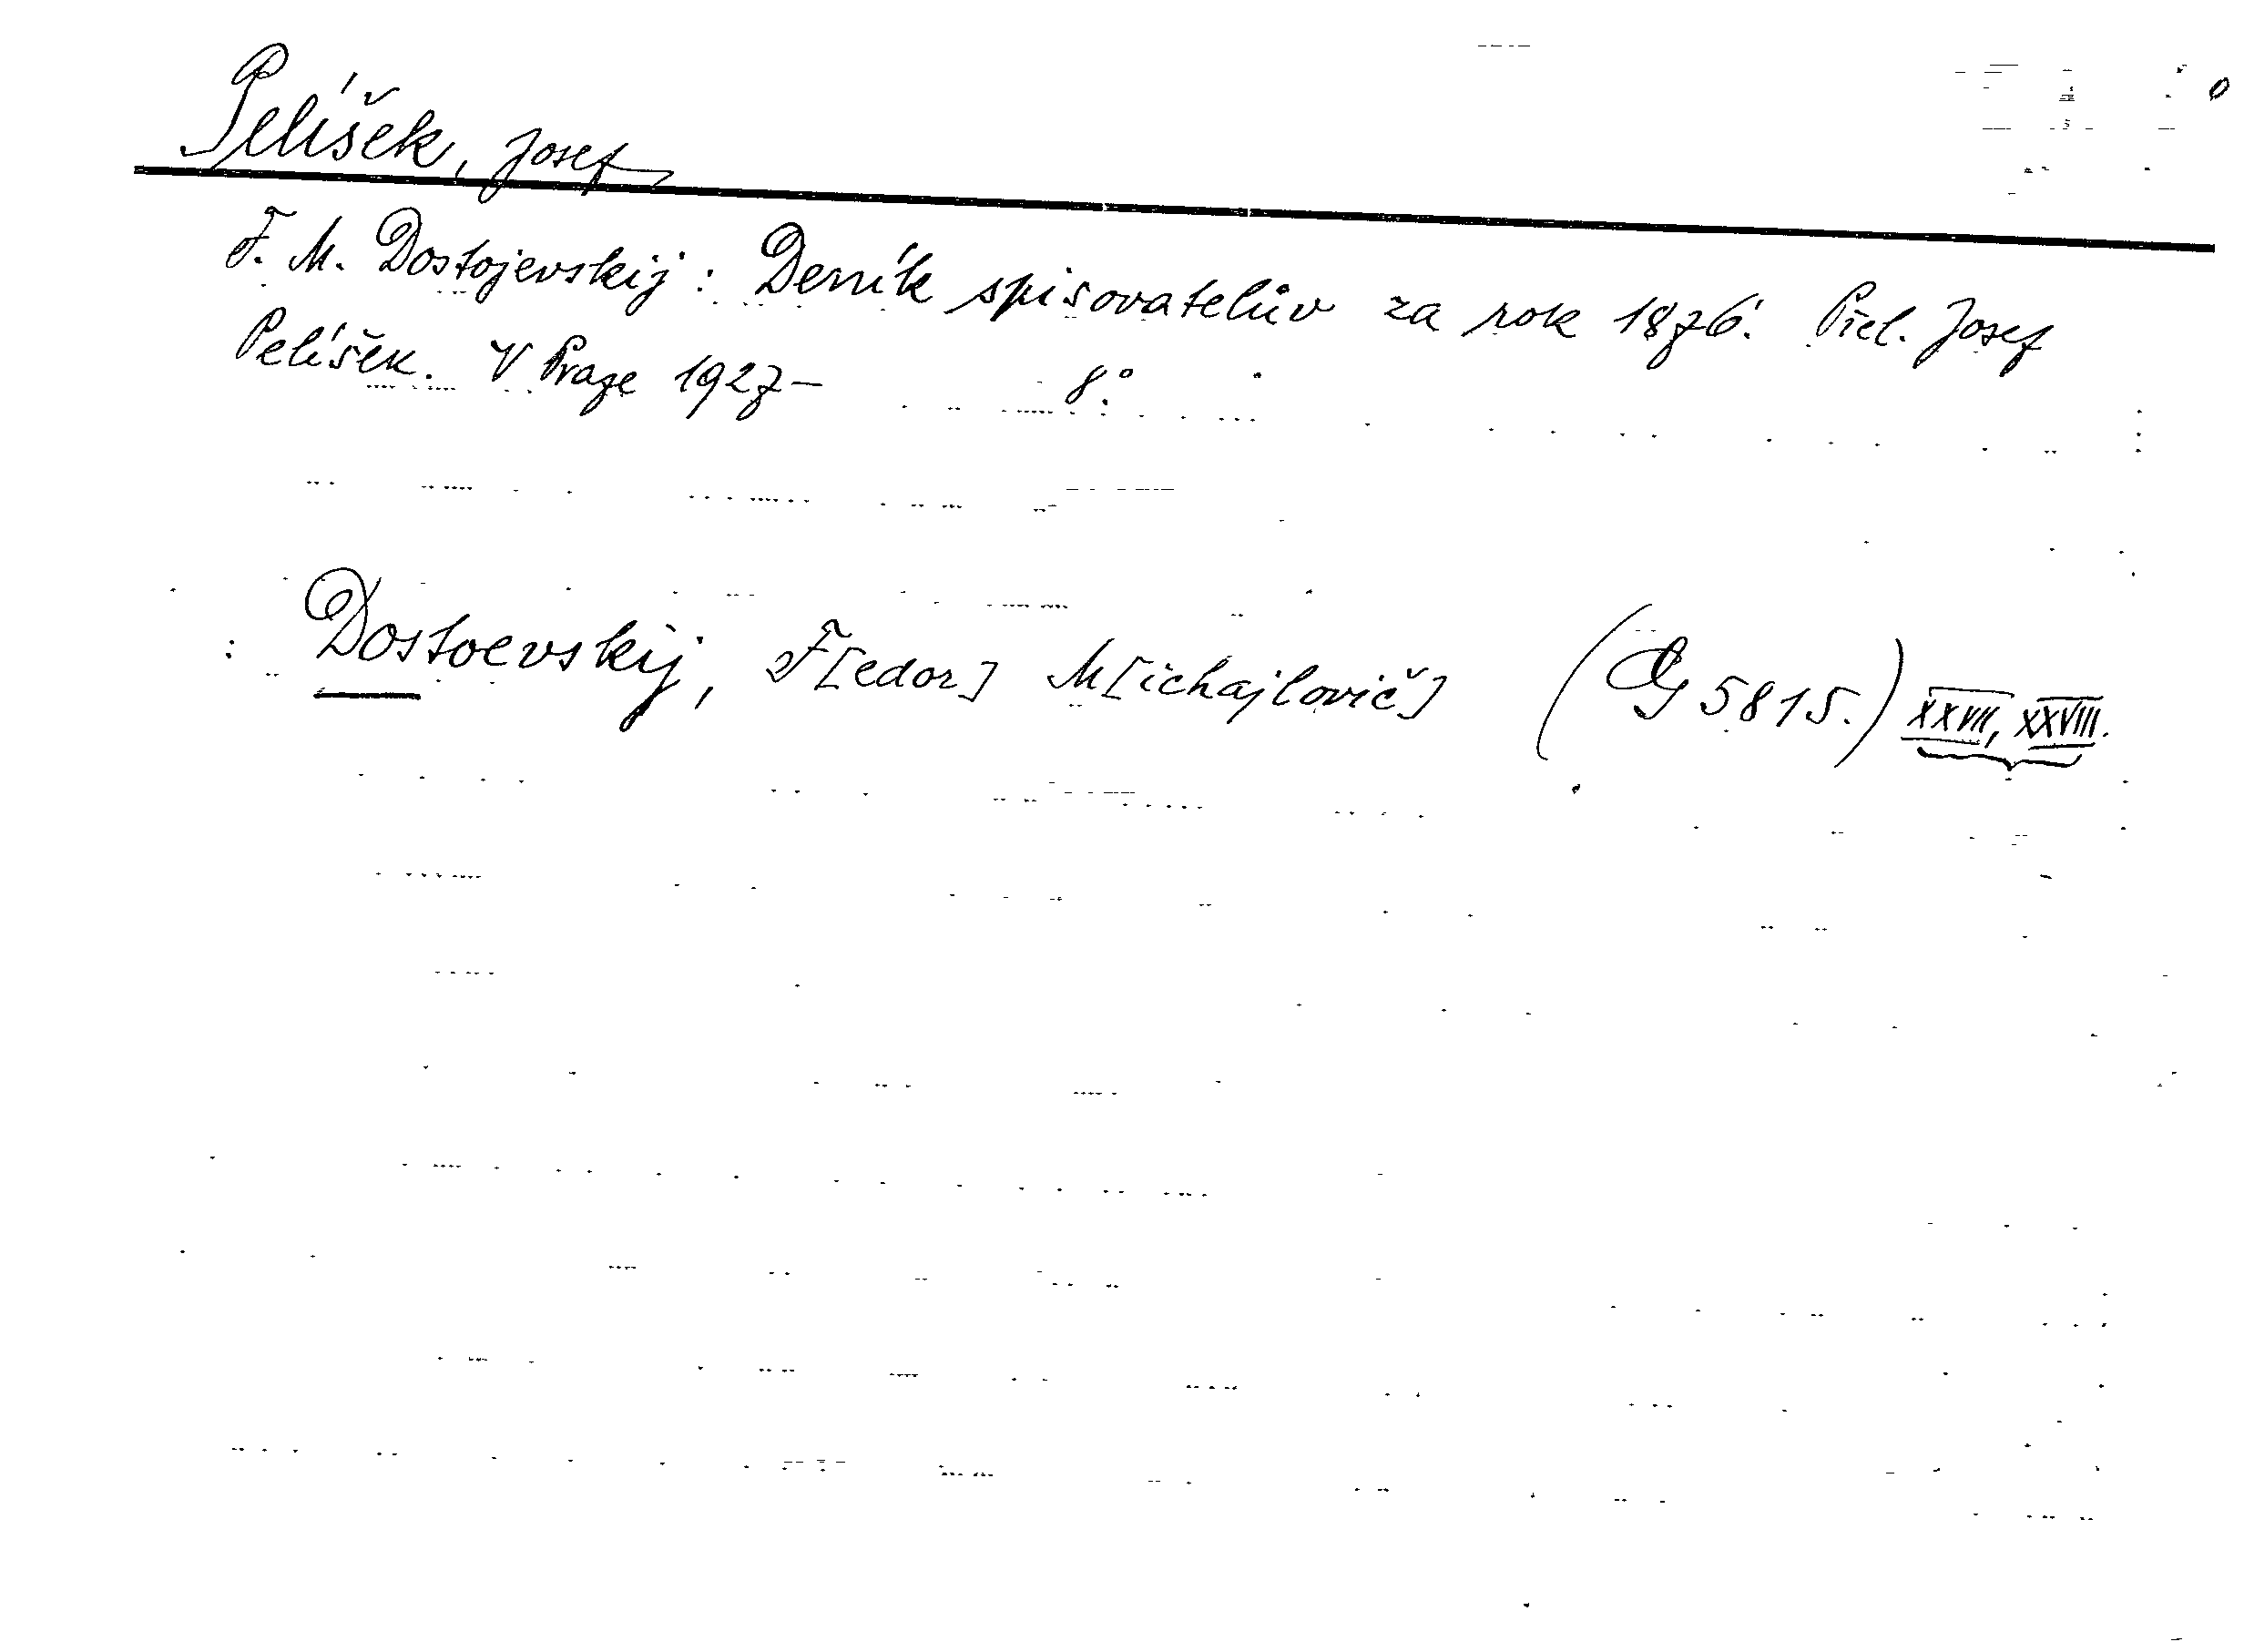 Pelíšek, Josef
F. M. Dostojevskij: Denník spisovatelův za rok 1876. Přel. Josef
Pelíšek. V Praze 1927– 8°.
: Dostoevskij, F[edor] M[ichajlovič] ( 5815.) XXVII, XXVIII.